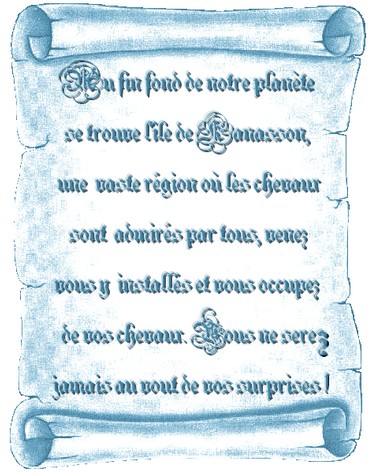 Au fin fond de notre planète
se trouve l'île de Kanasson,
une vaste région où les chevaux
sont admirés par tous, venez
vous y installés et vous occupez
de vos chevaux. Vous ne serez
jamais au bout de vos surprises !